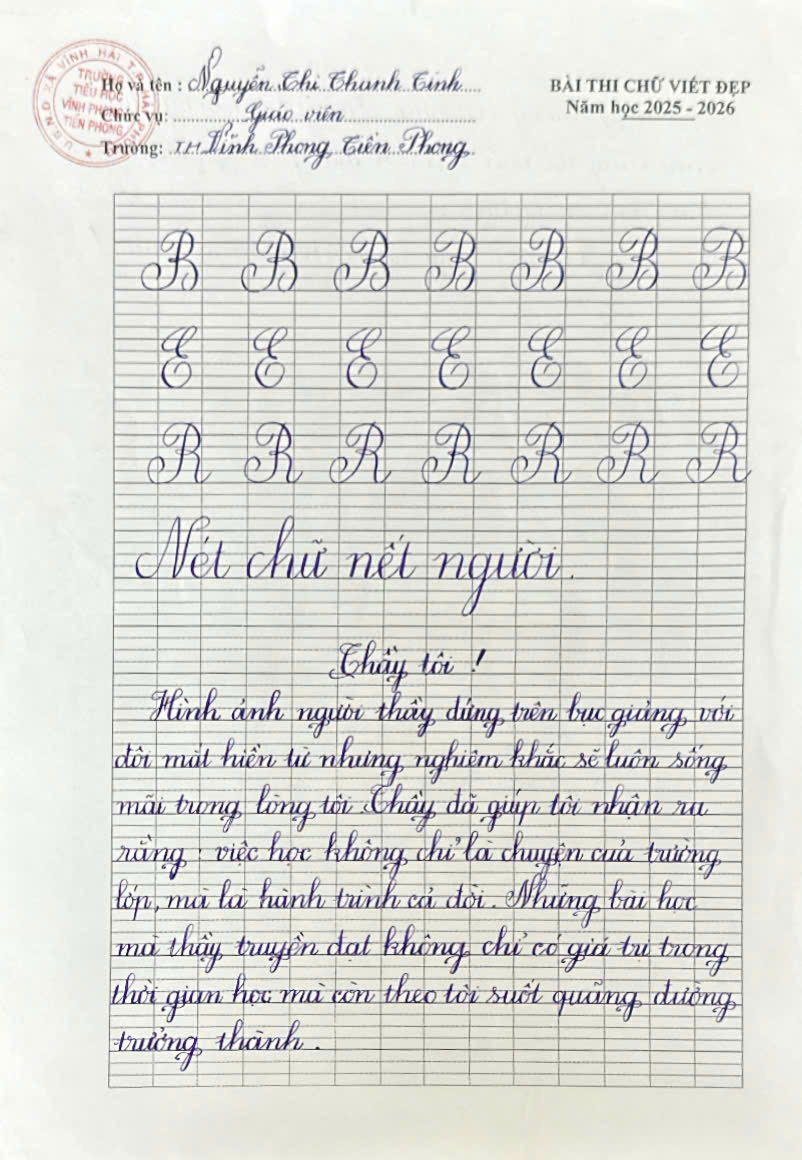 U.B.N.D XÃ VĨNH HẢI T.P HẢI PHÒNG
TRƯỜNG
TIỂU HỌC
VĨNH PHONG
TIỀN PHONG
Họ và tên : Nguyễn Thị Thanh Tính
Chức vụ: Giáo viên
Trường: TH Vĩnh Phong Tiền Phong
BÀI THI CHỮ VIẾT ĐẸP
Năm học 2025 - 2026
B B B B B B B
E E E E E E E
R R R R R R R
Nét chữ nết người.
Thầy tôi !
Hình ảnh người thầy đứng trên bục giảng với
đôi mắt hiền từ nhưng nghiêm khắc sẽ luôn sống
mãi trong lòng tôi. Thầy đã giúp tôi nhận ra
rằng : việc học không chỉ là chuyện của trường
lớp, mà là hành trình cả đời. Những bài học
mà thầy truyền đạt không chỉ có giá trị trong
thời gian học mà còn theo tôi suốt quãng đường
trưởng thành .